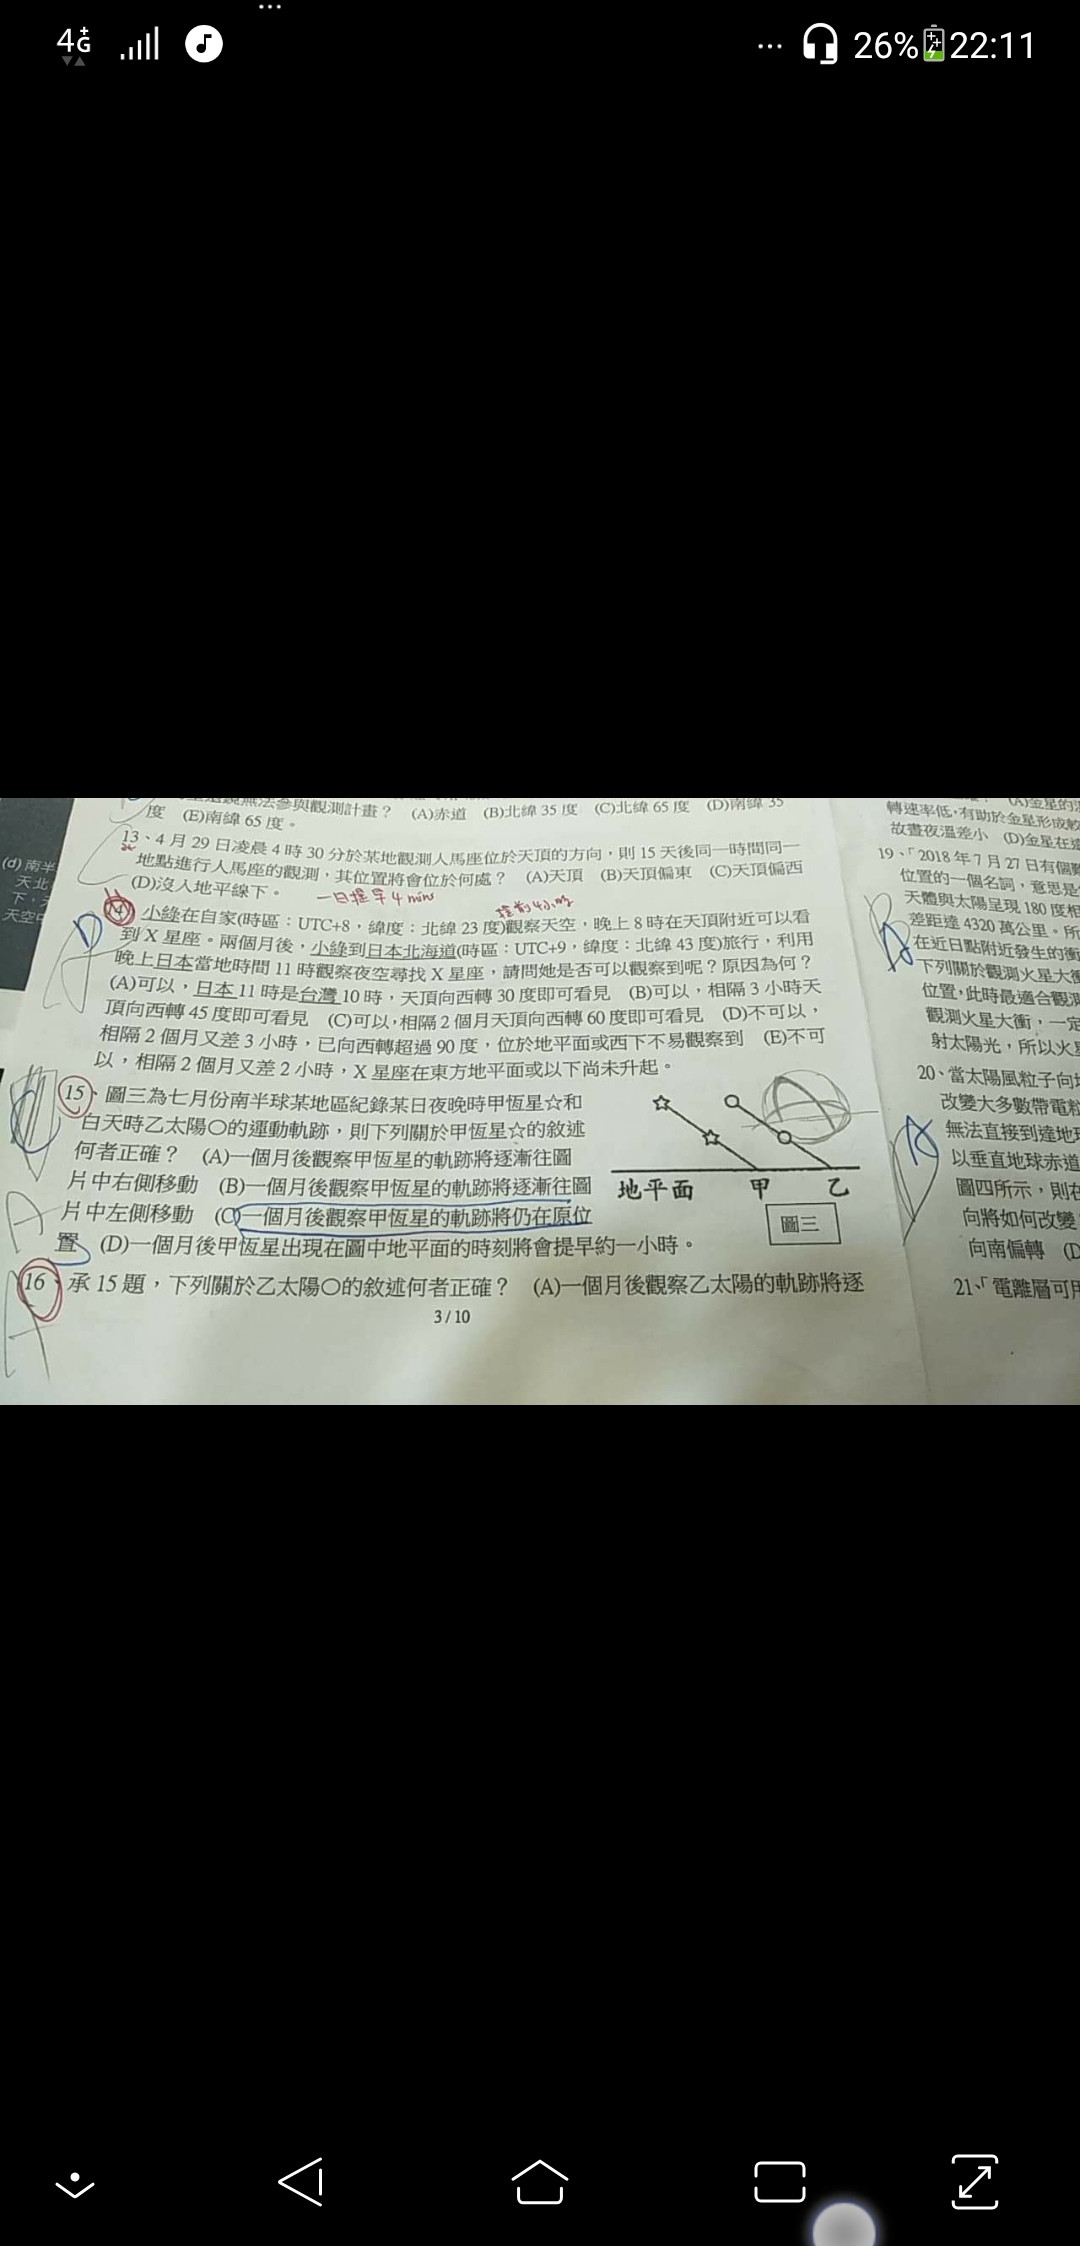 4G
26%
22:11
無法參與觀測計畫？ (A)赤道 (B)北緯 35 度 (C)北緯 65 度 (D)南緯 35
度 (E)南緯 65 度。
13、4 月 29 日凌晨 4 時 30 分於某地觀測人馬座位於天頂的方向，則 15 天後同一時間同一
地點進行人馬座的觀測，其位置將會位於何處？ (A)天頂 (B)天頂偏東 (C)天頂偏西
(D)沒入地平線下。
一日提早 4 mins
提前4小時
D
14、小綠在自家(時區：UTC+8，緯度：北緯 23 度)觀察天空，晚上 8 時在天頂附近可以看
到 X 星座。兩個月後，小綠到日本北海道(時區：UTC+9，緯度：北緯 43 度)旅行，利用
晚上日本當地時間 11 時觀察夜空尋找 X 星座，請問她是否可以觀察到呢？原因為何？
(A)可以，日本 11 時是台灣 10 時，天頂向西轉 30 度即可看見 (B)可以，相隔 3 小時天
頂向西轉 45 度即可看見 (C)可以，相隔 2 個月天頂向西轉 60 度即可看見 (D)不可以，
相隔 2 個月又差 3 小時，已向西轉超過 90 度，位於地平面或西下不易觀察到 (E)不可
以，相隔 2 個月又差 2 小時，X 星座在東方地平面或以下尚未升起。
15、圖三為七月份南半球某地區紀錄某日夜晚時甲恆星☆和
白天時乙太陽○的運動軌跡，則下列關於甲恆星☆的敘述
何者正確？ (A)一個月後觀察甲恆星的軌跡將逐漸往圖
片中右側移動 (B)一個月後觀察甲恆星的軌跡將逐漸往圖
片中左側移動 (C)一個月後觀察甲恆星的軌跡將仍在原位
置 (D)一個月後甲恆星出現在圖中地平面的時刻將會提早約一小時。
地平面 甲 乙
圖三
A
16、承 15 題，下列關於乙太陽○的敘述何者正確？ (A)一個月後觀察乙太陽的軌跡將逐
3 / 10
(d) 南半
天北
下，
天空
(A)金星的
轉速率低，有助於金星形成較
故晝夜溫差小 (D)金星在
19、「2018 年 7 月 27 日有個
位置的一個名詞，意思是
天體與太陽呈現 180 度相
差距達 4320 萬公里。所
在近日點附近發生的衝
下列關於觀測火星大衝
位置，此時最適合觀測
觀測火星大衝，一定
射太陽光，所以火星
20、當太陽風粒子向
改變大多數帶電粒
無法直接到達地球
以垂直地球赤道
圖四所示，則在
向將如何改變
向南偏轉 (D
21、「電離層可用